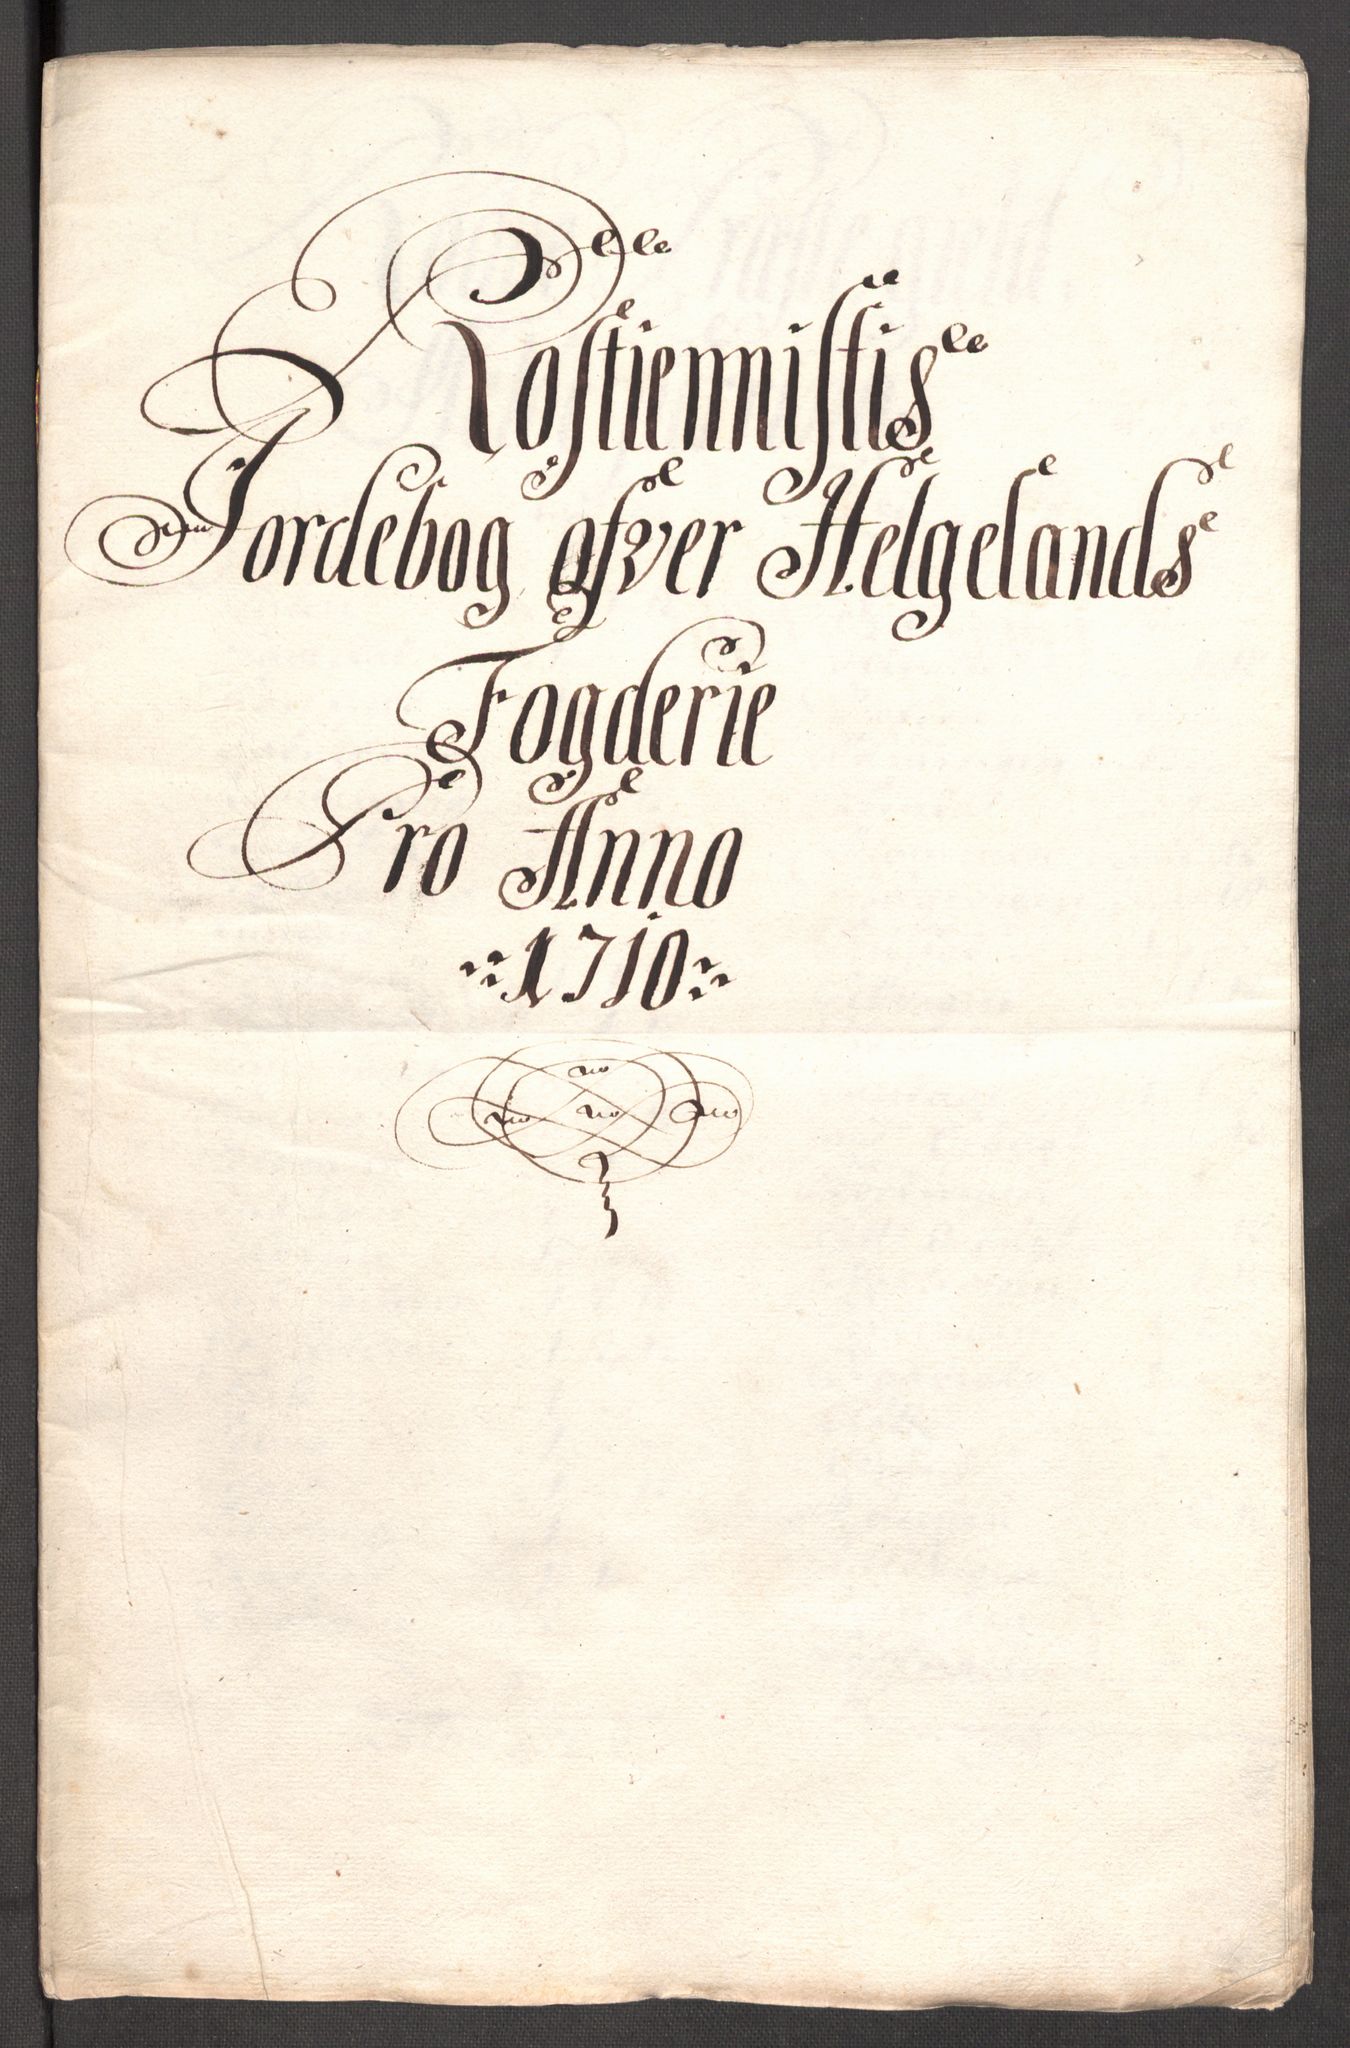 Rostiennistis
Jordebog ofver Helgelands
Fogderie
Pro Anno
1710